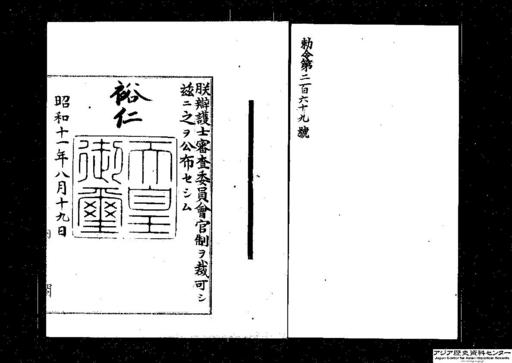 勅令第二百六十九號
朕辯護士審査委員會官制ヲ裁可シ
玆ニ之ヲ公布セシム
裕仁
天皇御璽
昭和十一年八月十九日
アジア歴史資料センター
Japan Center for Asian Historical Records